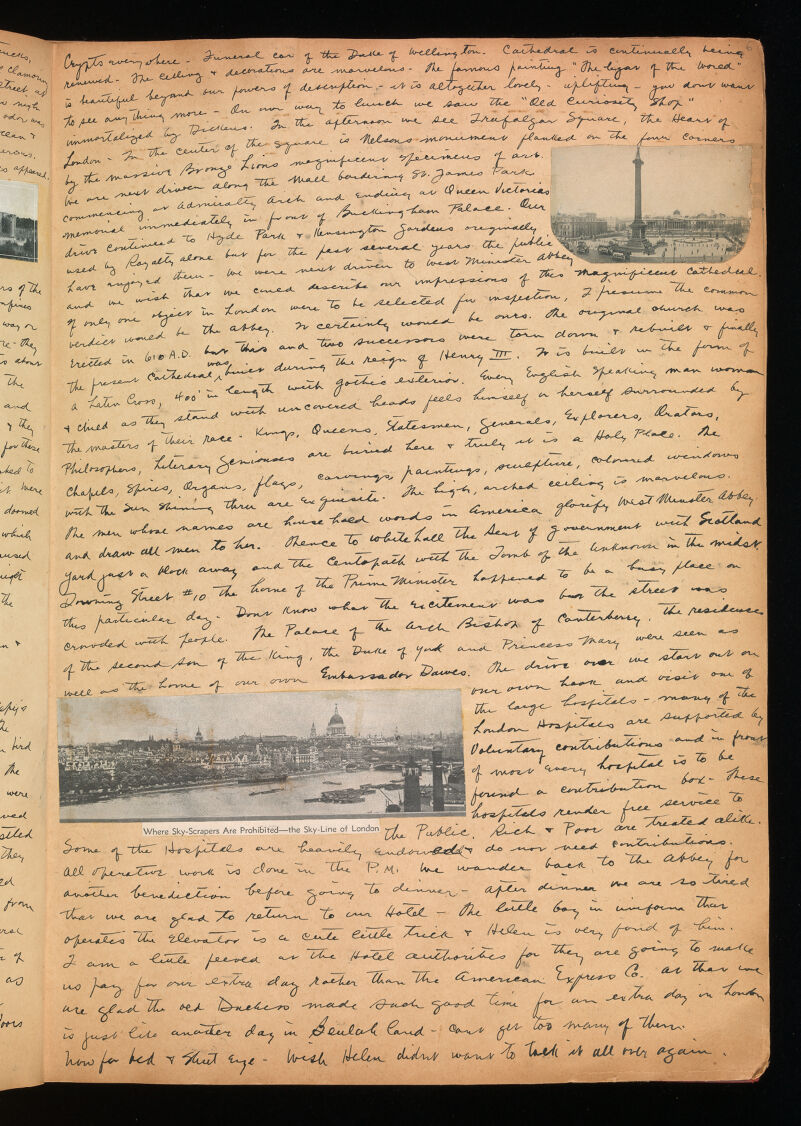 Crypts everywhere - Funeral car of the Duke of Wellington. Cathedral is continually being
renewed - The ceiling & decorations are marvelous - The famous painting "The light of the World"
is beautiful beyond our powers of description - it is altogether lovely - uplifting - you dont want
to see anything more - On our way to lunch we saw the "Old Curiosity Shop"
immortalized by Dickens. In the afternoon we see Trafalgar Square, the Heart of
London - In the center of the square is Nelsons monument flanked on the four corners
by the massive Bronze Lions magnificent specimens of art.
We are next driven along the Mall bordering St. James Park
commencing at Admiralty Arch and ending at Queen Victorias
memorial immediately in front of Buckingham Palace. Our
drive continued to Hyde Park & Kensington Gardens originally
used by Royalty alone but for the past several years the public
have enjoyed them - We were next driven to West Minister Abbey
and we wish that we could describe our impressions of this magnificent Cathedral.
If only one object in London were to be selected for inspection, I presume the common
verdict would be the Abbey. It certainly would be ours. The original church was
Erected in 610 A.D. but this and two successors were torn down & rebuilt & finally
the present Cathedral was built during the reign of Henry III. It is built in the form of
a Latin Cross, 400' in length with gothic exterior. Every English speaking man woman
& child as they stand with uncovered heads feels himself or herself surrounded by
the masters of their race - Kings, Queens, Statesmen, Generals, Explorers, Orators,
Philosophers, Literary Geniouses are buried here & truly it is a Holy Place. The
Chapels, Spires, Organs, flags, carvings, paintings, sculpture, coloured windows
with the Sun shining thru are exquisite. The high, arched ceiling is marvelous.
The men whose names are house hold words in America glorify West Minster Abbey
and draw all men to her. Thence to Whitehall the Seat of government with Scotland
Yard just a block away and the Centopath with the Tomb of the Unknown in the midst.
Downing Street #10 the home of the Prime Minister happened to be a busy place on
this particular day - Dont know what the excitement was but the street was
crowded with people. The Palace of the Arch Bishop of Canterberry, the residences
of the second son of the King, the Duke of York and Princess Mary were seen as
well as the home of our own Embassador Dawes. The drive over we start out on
our own hook and visit one of
the large hospitals - many of the
London Hospitals are supported by
Voluntary contributions and in front
of most every hospital is to be
found a contribution box - these
hospitals render free service to
Where Sky-Scrapers Are Prohibited—the Sky-Line of London
the Public. Rich & Poor are treated alike.
Some of the Hospitals are heavily endowed & do not need contributions.
All operative work is done in the P.M. We wander back to the Abbey for
another benediction before going to dinner - after dinner we are so tired
that we are glad to return to our Hotel - The little boy in uniform that
operates the Elevator is a cute little trick & Helen is very fond of him.
I am a little peeved at the Hotel authorities for they are going to make
us pay for our extra day rather than the American Express Co. at that we
are glad the old Duchess made such good time for an extra day in London
is just like another day in Beulah land - cant get too many of them.
Now for bed & Shut Eye - Wish Helen didnt want to talk it all over again.